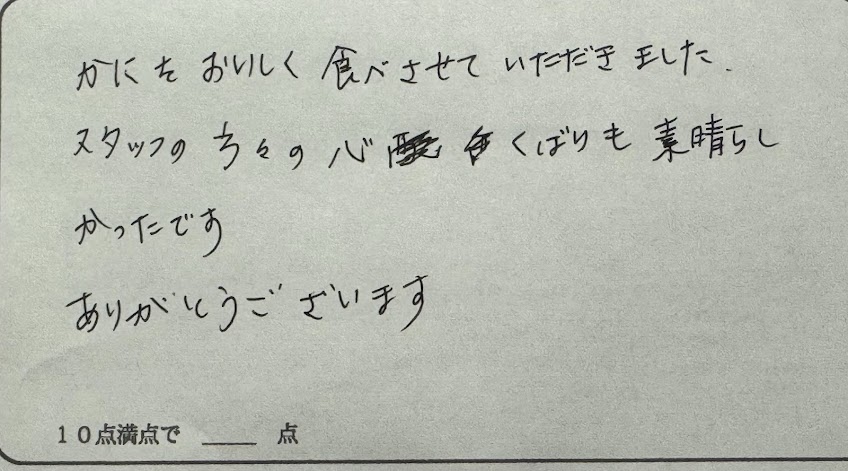 かにを おいしく 食べさせて いただきました.
スタッフの 方々の 心 くばりも 素晴らし
かったです
ありがとうございます
10点満点で ____ 点